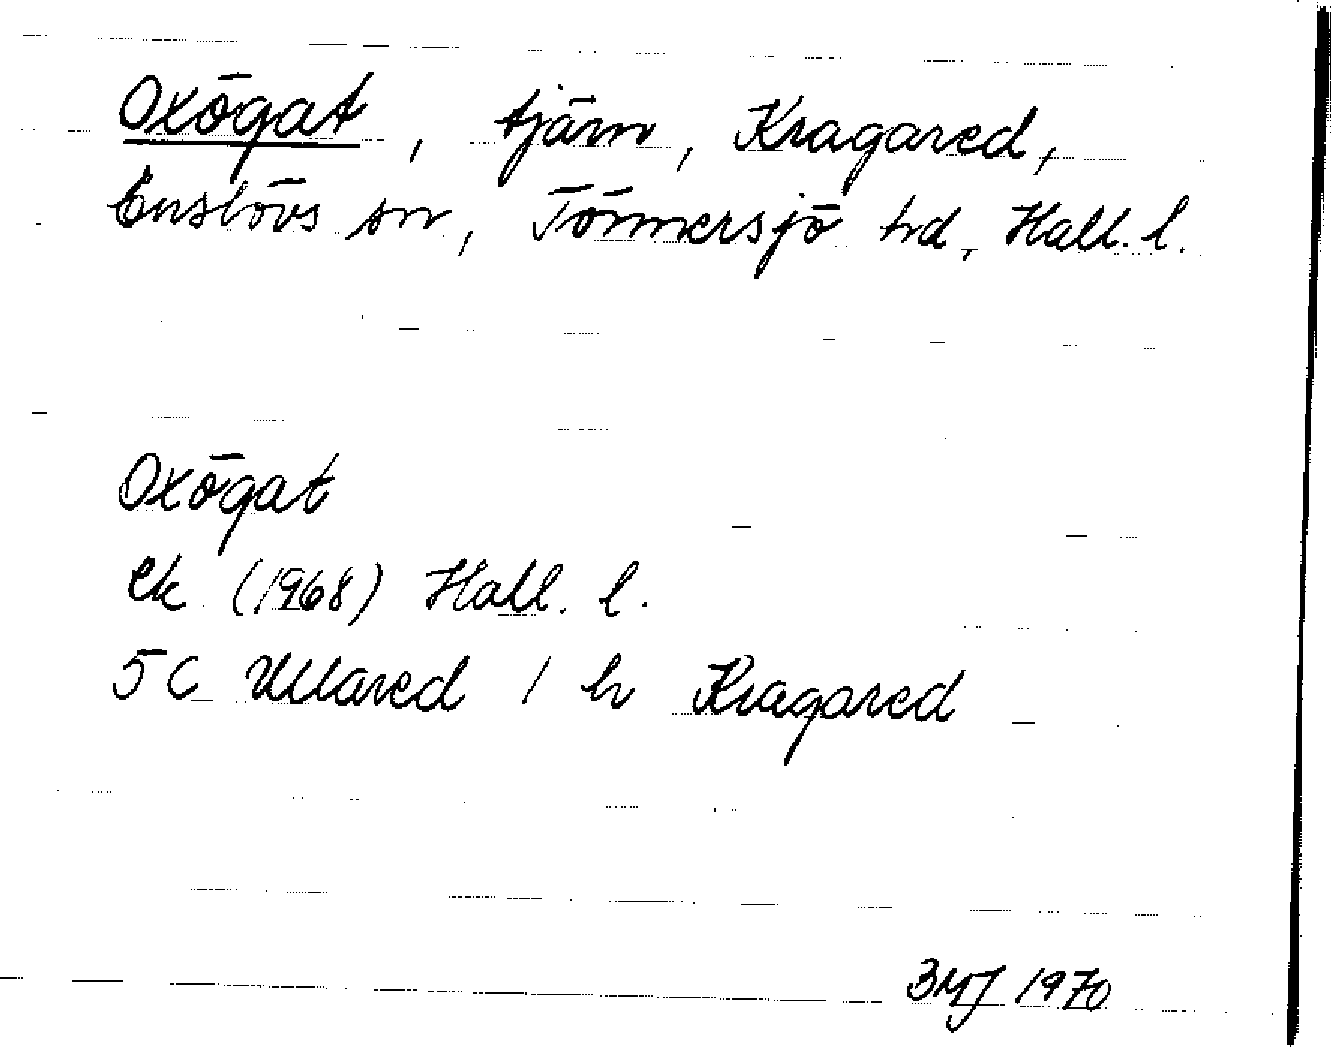 Oxögat, tjärn, Kragared,
Enslövs sn, Tönnersjö hd, Hall. l.
Oxögat
ek (1968) Hall. l.
5C Ullared 1 h Kragared
BMJ 1970